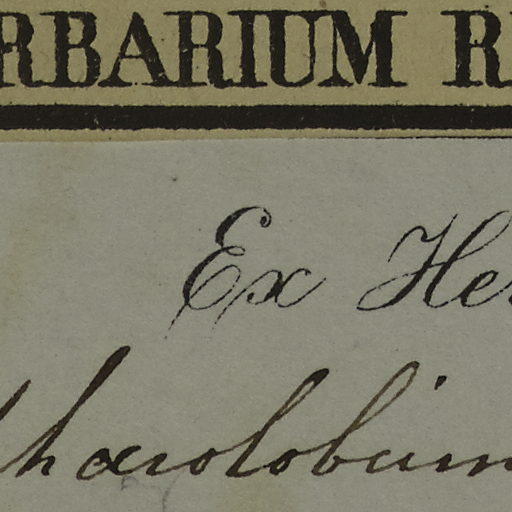 RBARIUM R
Ex Her
haerolobium